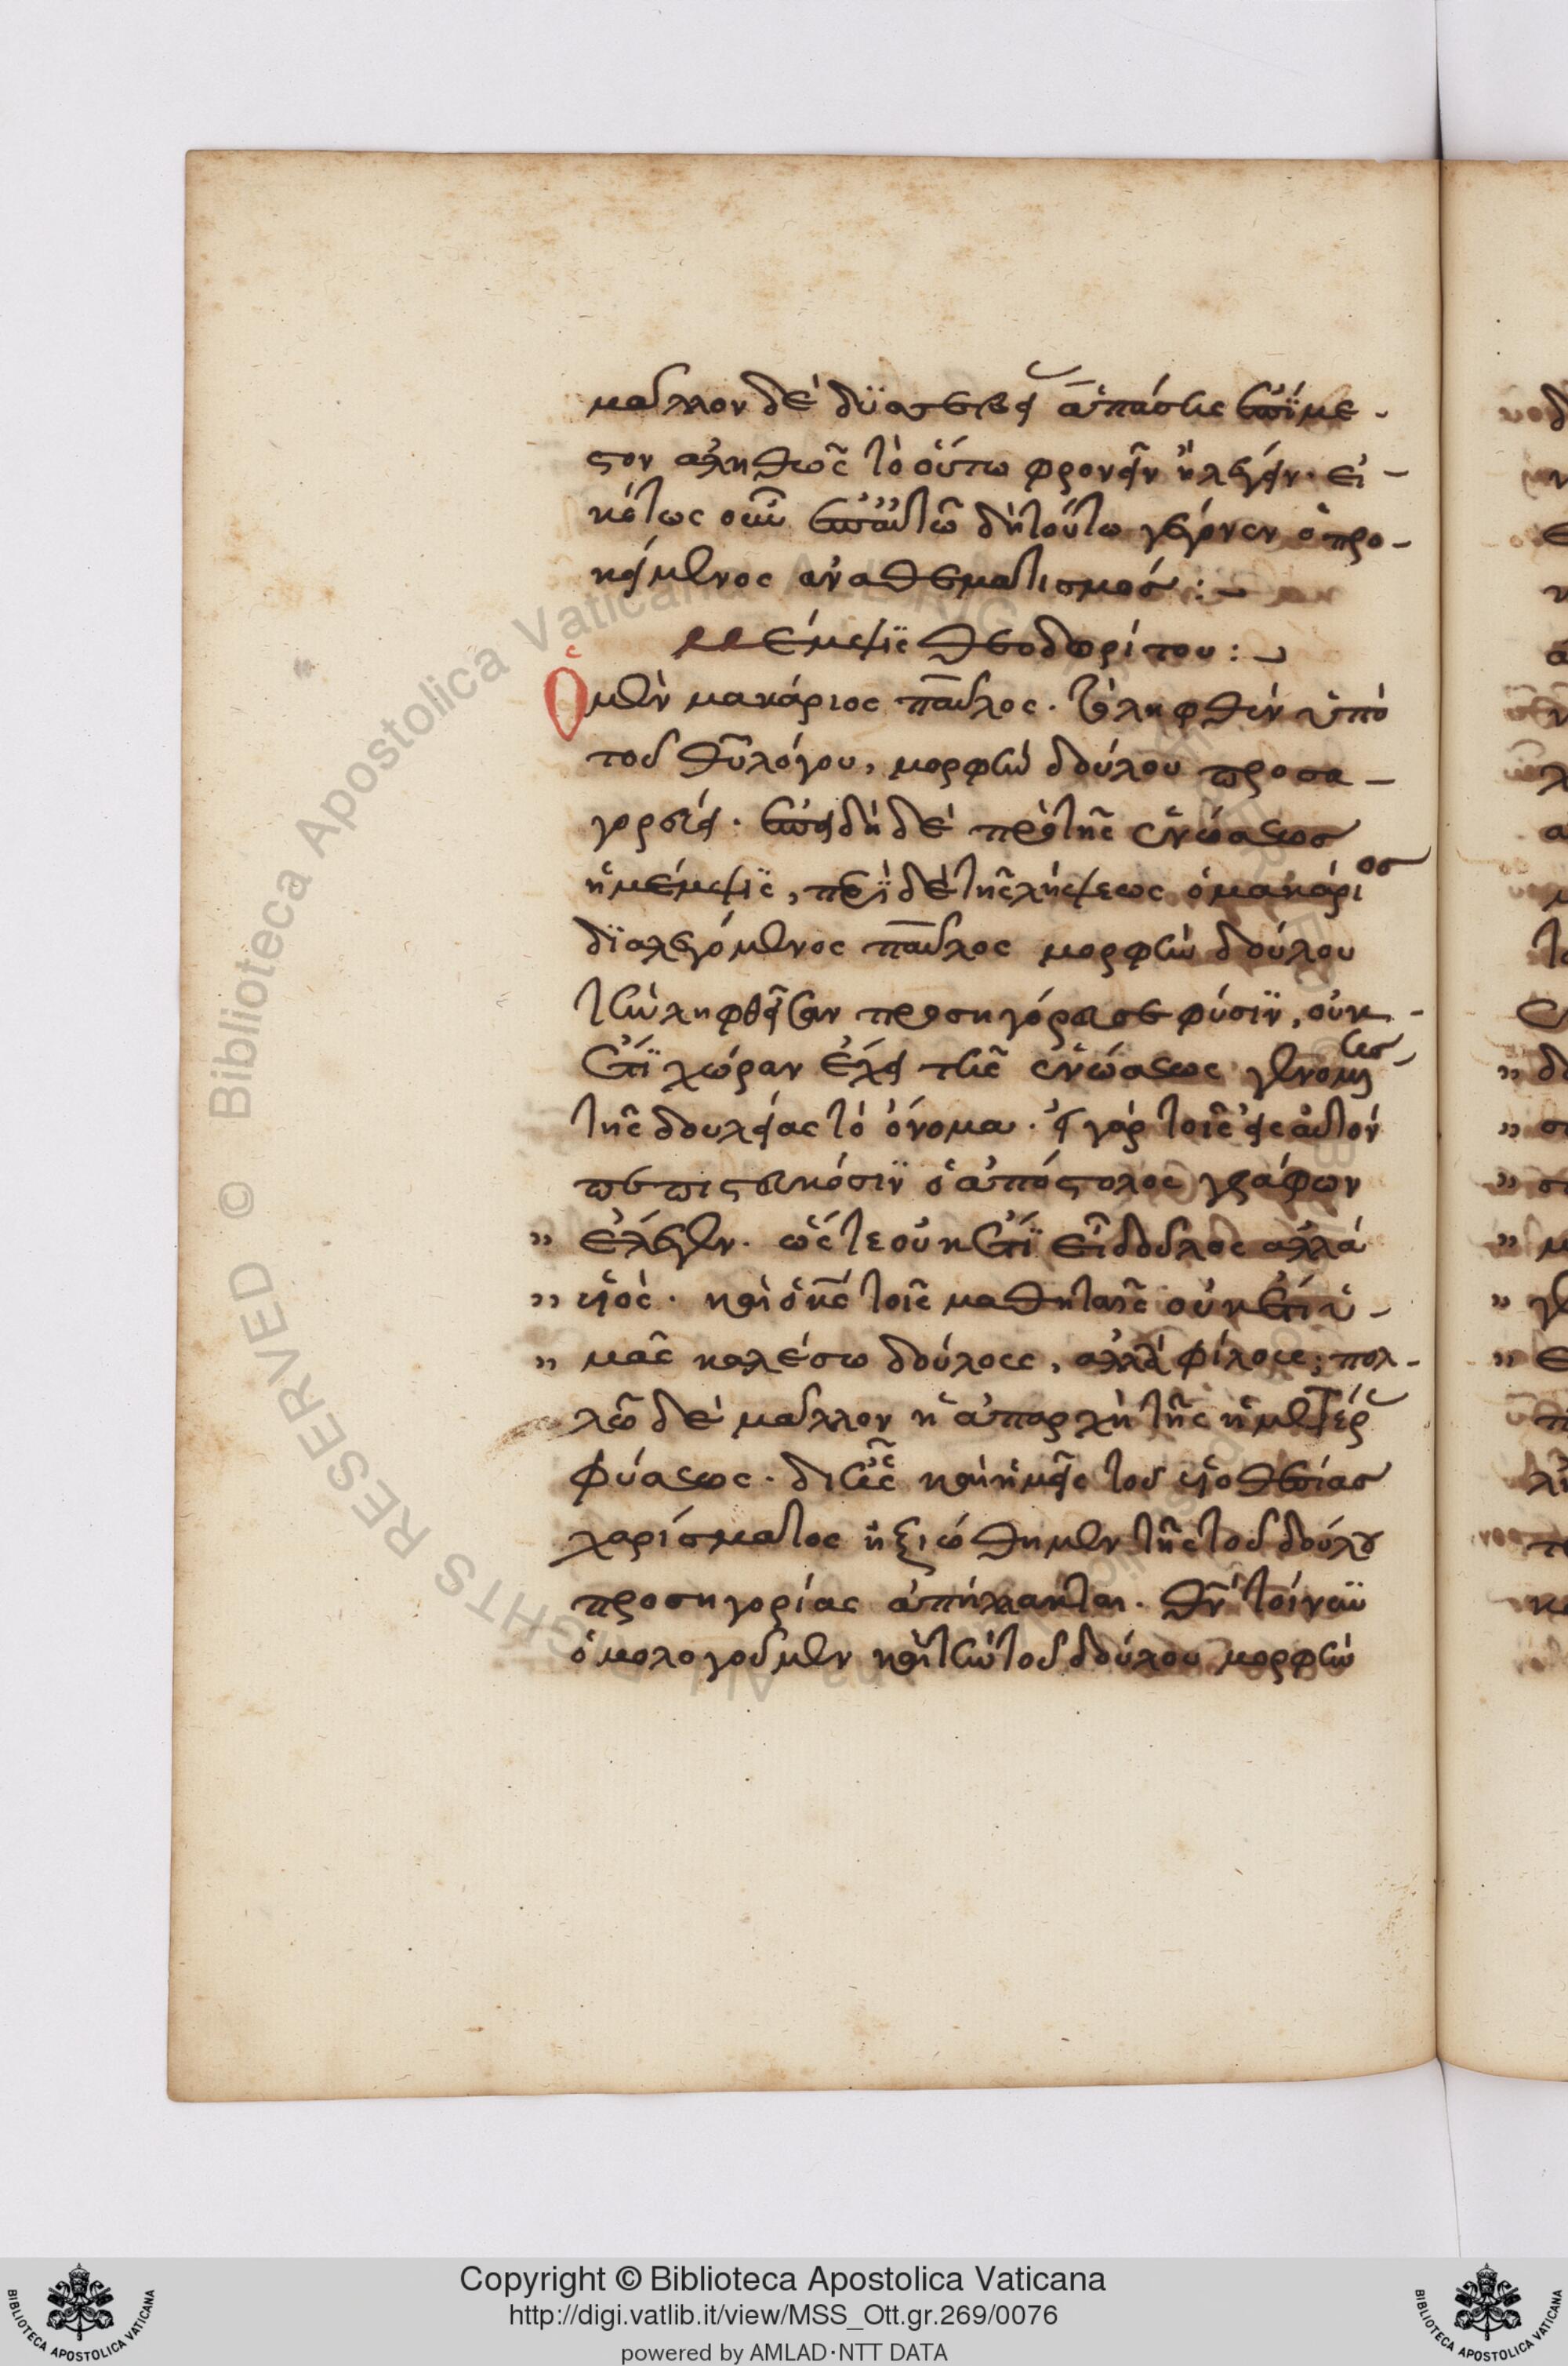 μᾶλλον δὲ δυσσεβείας ἁπάσης ἐπίμε-
στον ἀληθῶς τὸ οὕτω φρονεῖν ἢ λέγειν. εἰ-
κότως οὖν ἐπ' αὐτῶ δὴ τούτω γέγονεν ὁ προ-
κείμενος ἀναθεματισμός :-
μέμψις θεοδωρίτου :-
Ὁ μὲν μακάριος παῦλος. τὸ ληφθὲν ὑπὸ
τοῦ θυ λόγου, μορφὴν δούλου προσα-
γορεύει. ἐπειδὴ δὲ πρὸ τῆς ἑνώσεως
ἡ λῆψις, περὶ δὲ τῆς λήψεως ὁ μακάριος
διαλεγόμενος παῦλος μορφὴν δούλου
τὴν ληφθεῖσαν προσηγόρευσε φύσιν, οὐκ
ἔτι χώραν ἔχει τῆς ἑνώσεως γενομένης
τῆς δουλείας τὸ ὄνομα. εἰ γὰρ τοῖς εἰς αὐτὸν
πεπιστευκόσιν ὁ ἀπόστολος γράφων
" ἔλεγεν. ὥστε οὐκ ἔτι εἶ δοῦλος ἀλλὰ
" υἱός. καὶ ὁ κς τοῖς μαθηταῖς οὐκ ἔτι ὑ-
" μᾶς καλέσω δούλους, ἀλλὰ φίλους; πολ-
λῶ δὲ μᾶλλον ἡ ἀπαρχὴ τῆς ἡμετέρας
φύσεως. δι' ἧς καὶ ἡμεῖς τοῦ υἱοθεσίας
χαρίσματος ἠξιώθημεν τῆς τοῦ δούλου
προσηγορίας ἀπήλλακται. θν τοίνυν
ὁμολογοῦμεν καὶ τὴν τοῦ δούλου μορφὴν
Copyright © Biblioteca Apostolica Vaticana
http://digi.vatlib.it/view/MSS_Ott.gr.269/0076
powered by AMLAD·NTT DATA